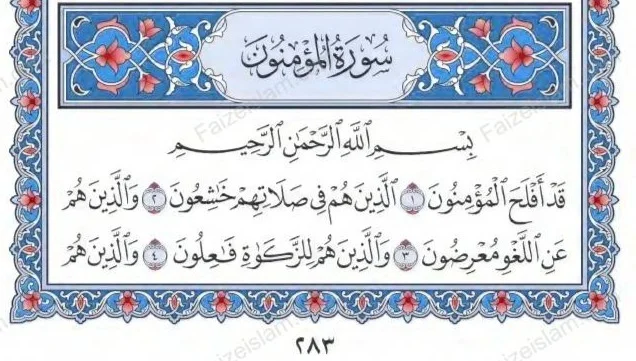 سُورَةُ الْمُؤْمِنُونَ
بِسْمِ ٱللَّهِ ٱلرَّحْمَٰنِ ٱلرَّحِيمِ
قَدْ أَفْلَحَ ٱلْمُؤْمِنُونَ ١ ٱلَّذِينَ هُمْ فِى صَلَاتِهِمْ خَٰشِعُونَ ٢ وَٱلَّذِينَ هُمْ
عَنِ ٱللَّغْوِ مُعْرِضُونَ ٣ وَٱلَّذِينَ هُمْ لِلزَّكَوٰةِ فَٰعِلُونَ ٤ وَٱلَّذِينَ هُمْ
٢٨٣
Faizeislam